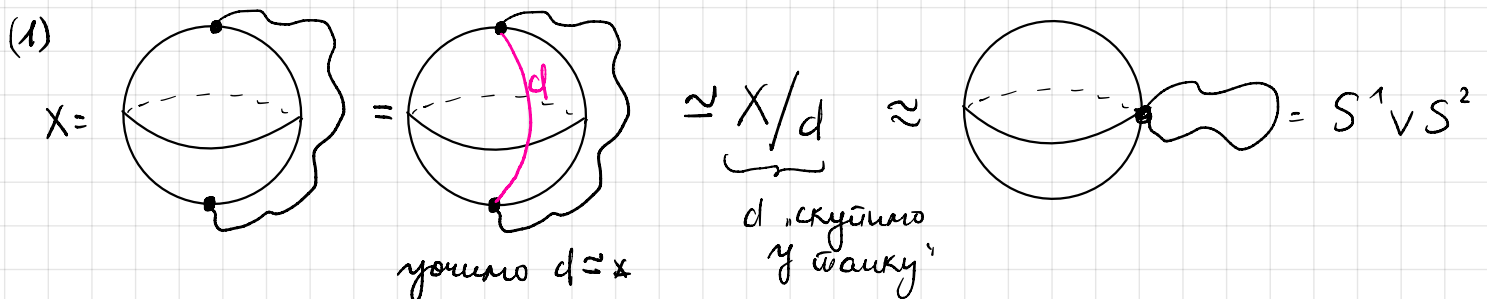 (1)
X = = d ≃ X/d ≈ = S¹ ∨ S²
уочимо d ≃ *
d „скупимо
у тачку“